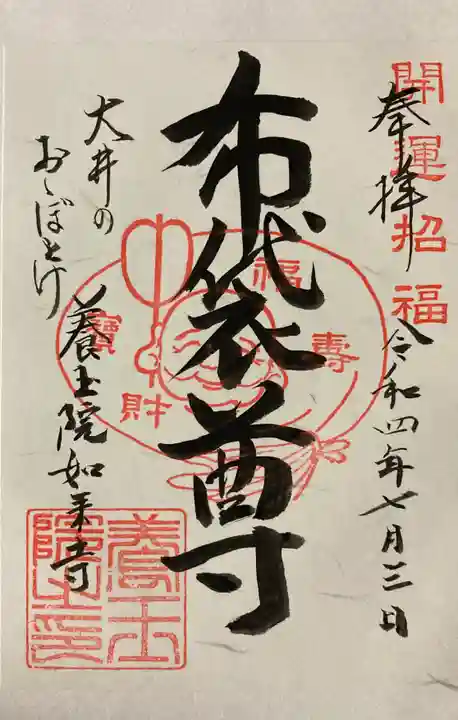 開運招福
奉拝
令和四年七月三日
布袋尊
福
壽
寶
財
大井の
おゝぼとけ
養玉院如来寺
養玉
院之印